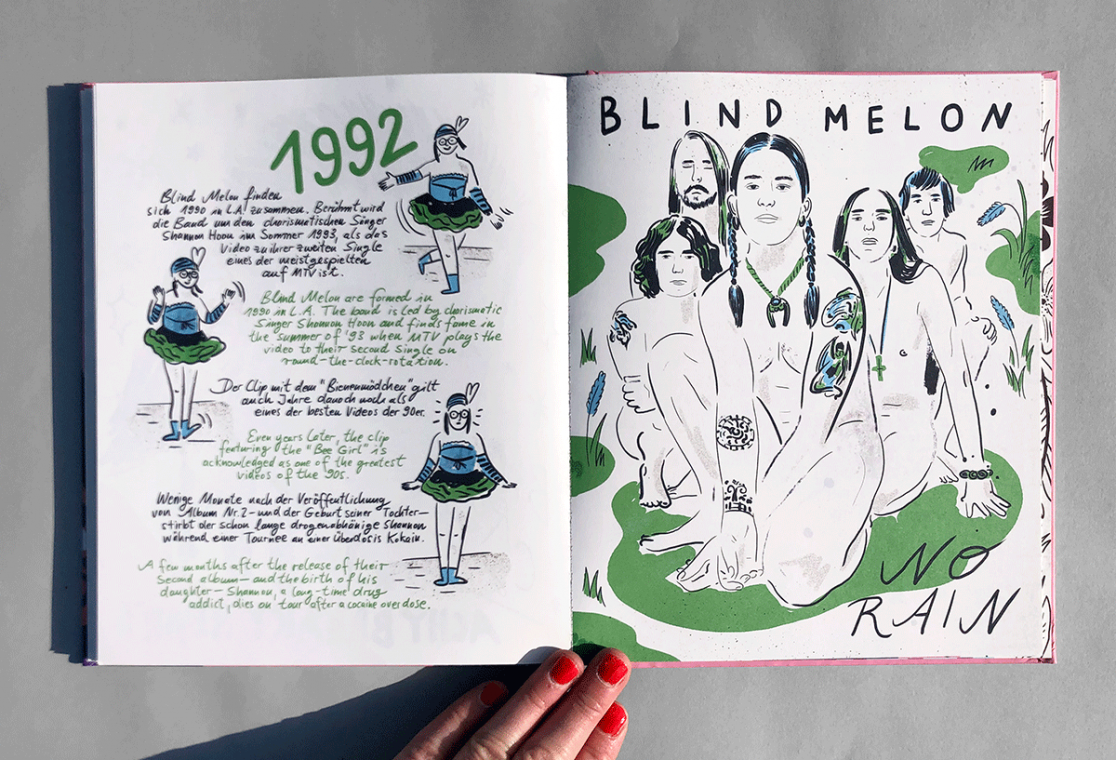 1992
Blind Melon finden
sich 1990 in L.A. zusammen. Berühmt wird
die Band um den charismatischen Sänger
Shannon Hoon im Sommer 1993, als das
Video zu ihrer zweiten Single
eines der meistgespielten
auf MTV ist.
Blind Melon are formed in
1990 in L.A. The band is led by charismatic
Singer Shannon Hoon and finds fame in
the summer of '93 when MTV plays the
video to their second single on
round-the-clock-rotation.
Der Clip mit dem "Bienenmädchen" gilt
auch Jahre danach noch als
eines der besten Videos der 90er.
Even years later, the clip
featuring the "Bee Girl" is
acknowledged as one of the greatest
videos of the 90s.
Wenige Monate nach der Veröffentlichung
von Album Nr. 2 - und der Geburt seiner Tochter -
stirbt der schon lange drogenabhänige Shannon
während einer Tournee an einer Überdosis Kokain.
A few months after the release of their
second album - and the birth of his
daughter - Shannon, a long-time drug
addict, dies on tour after a cocaine overdose.
BLIND MELON
NO
RAIN